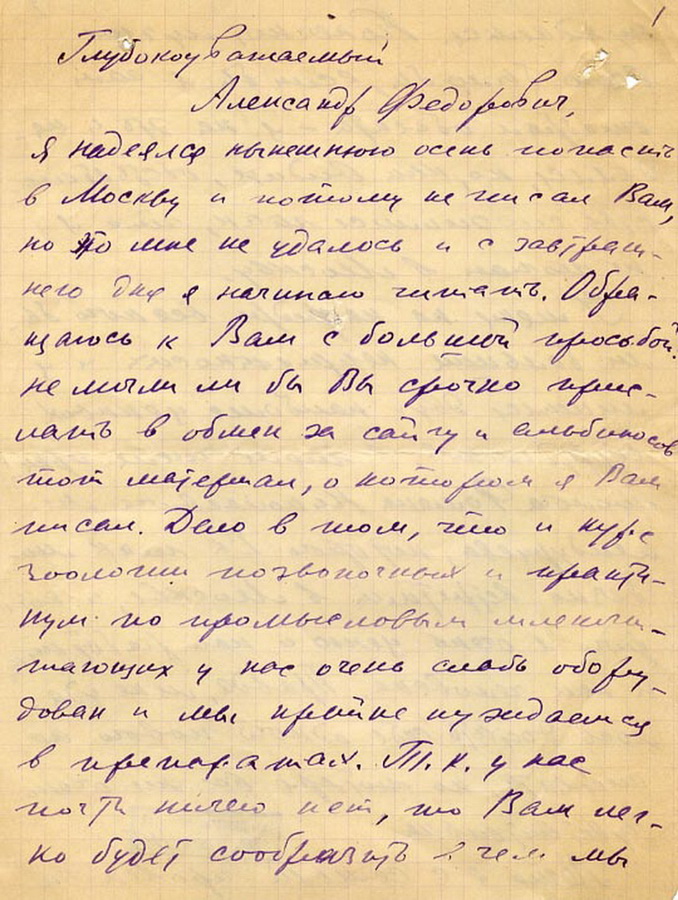 1
Глубокоуважаемый
Александр Федорович,
я надеялся нынешнюю осень попасть
в Москву и потому не писал Вам,
но это мне не удалось и с завтраш-
него дня я начинаю читать. Обра-
щаюсь к Вам с большой просьбой:
не могли ли бы Вы срочно прис-
лать в обмен за сайгу и альбиносов
тот материал, о котором я Вам
писал. Дело в том, что и курс
зоологии позвоночных и практи-
кум по промысловым млекопи-
тающих у нас очень слабо обору-
дован и мы крайне нуждаемся
в препаратах. Т.к. у нас
почти ничего нет, то Вам лег-
ко будет сообразить в чем мы